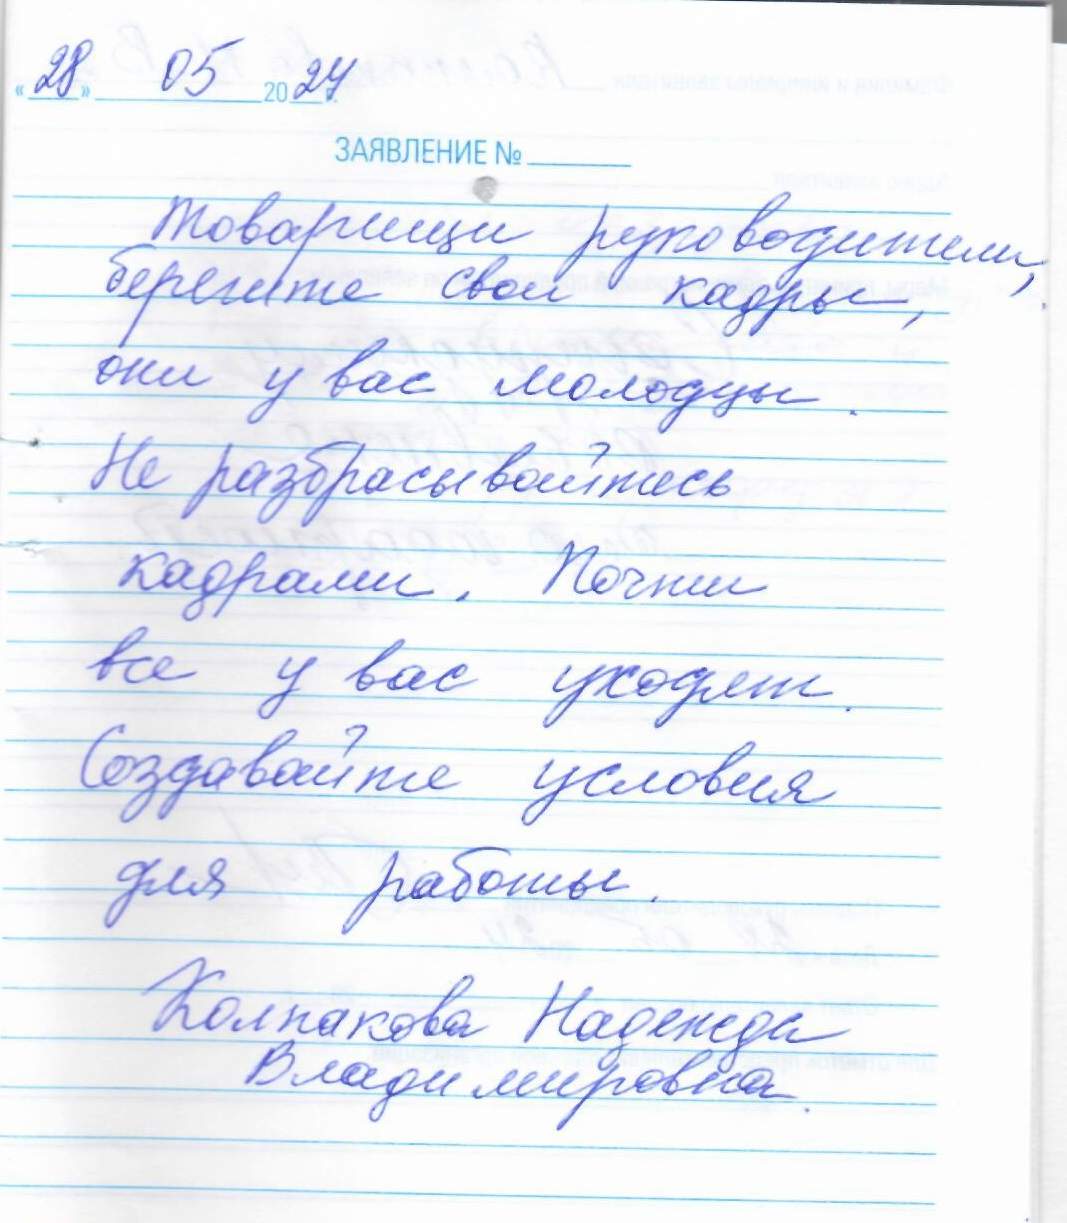 «28» 05 2024
ЗАЯВЛЕНИЕ № ______
Товарищи руководители,
берегите свои кадры,
они у вас молодцы.
Не разбрасывайтесь
кадрами. Почти
все у вас уходят.
Создавайте условия
для работы.
Колпакова Надежда
Владимировна.